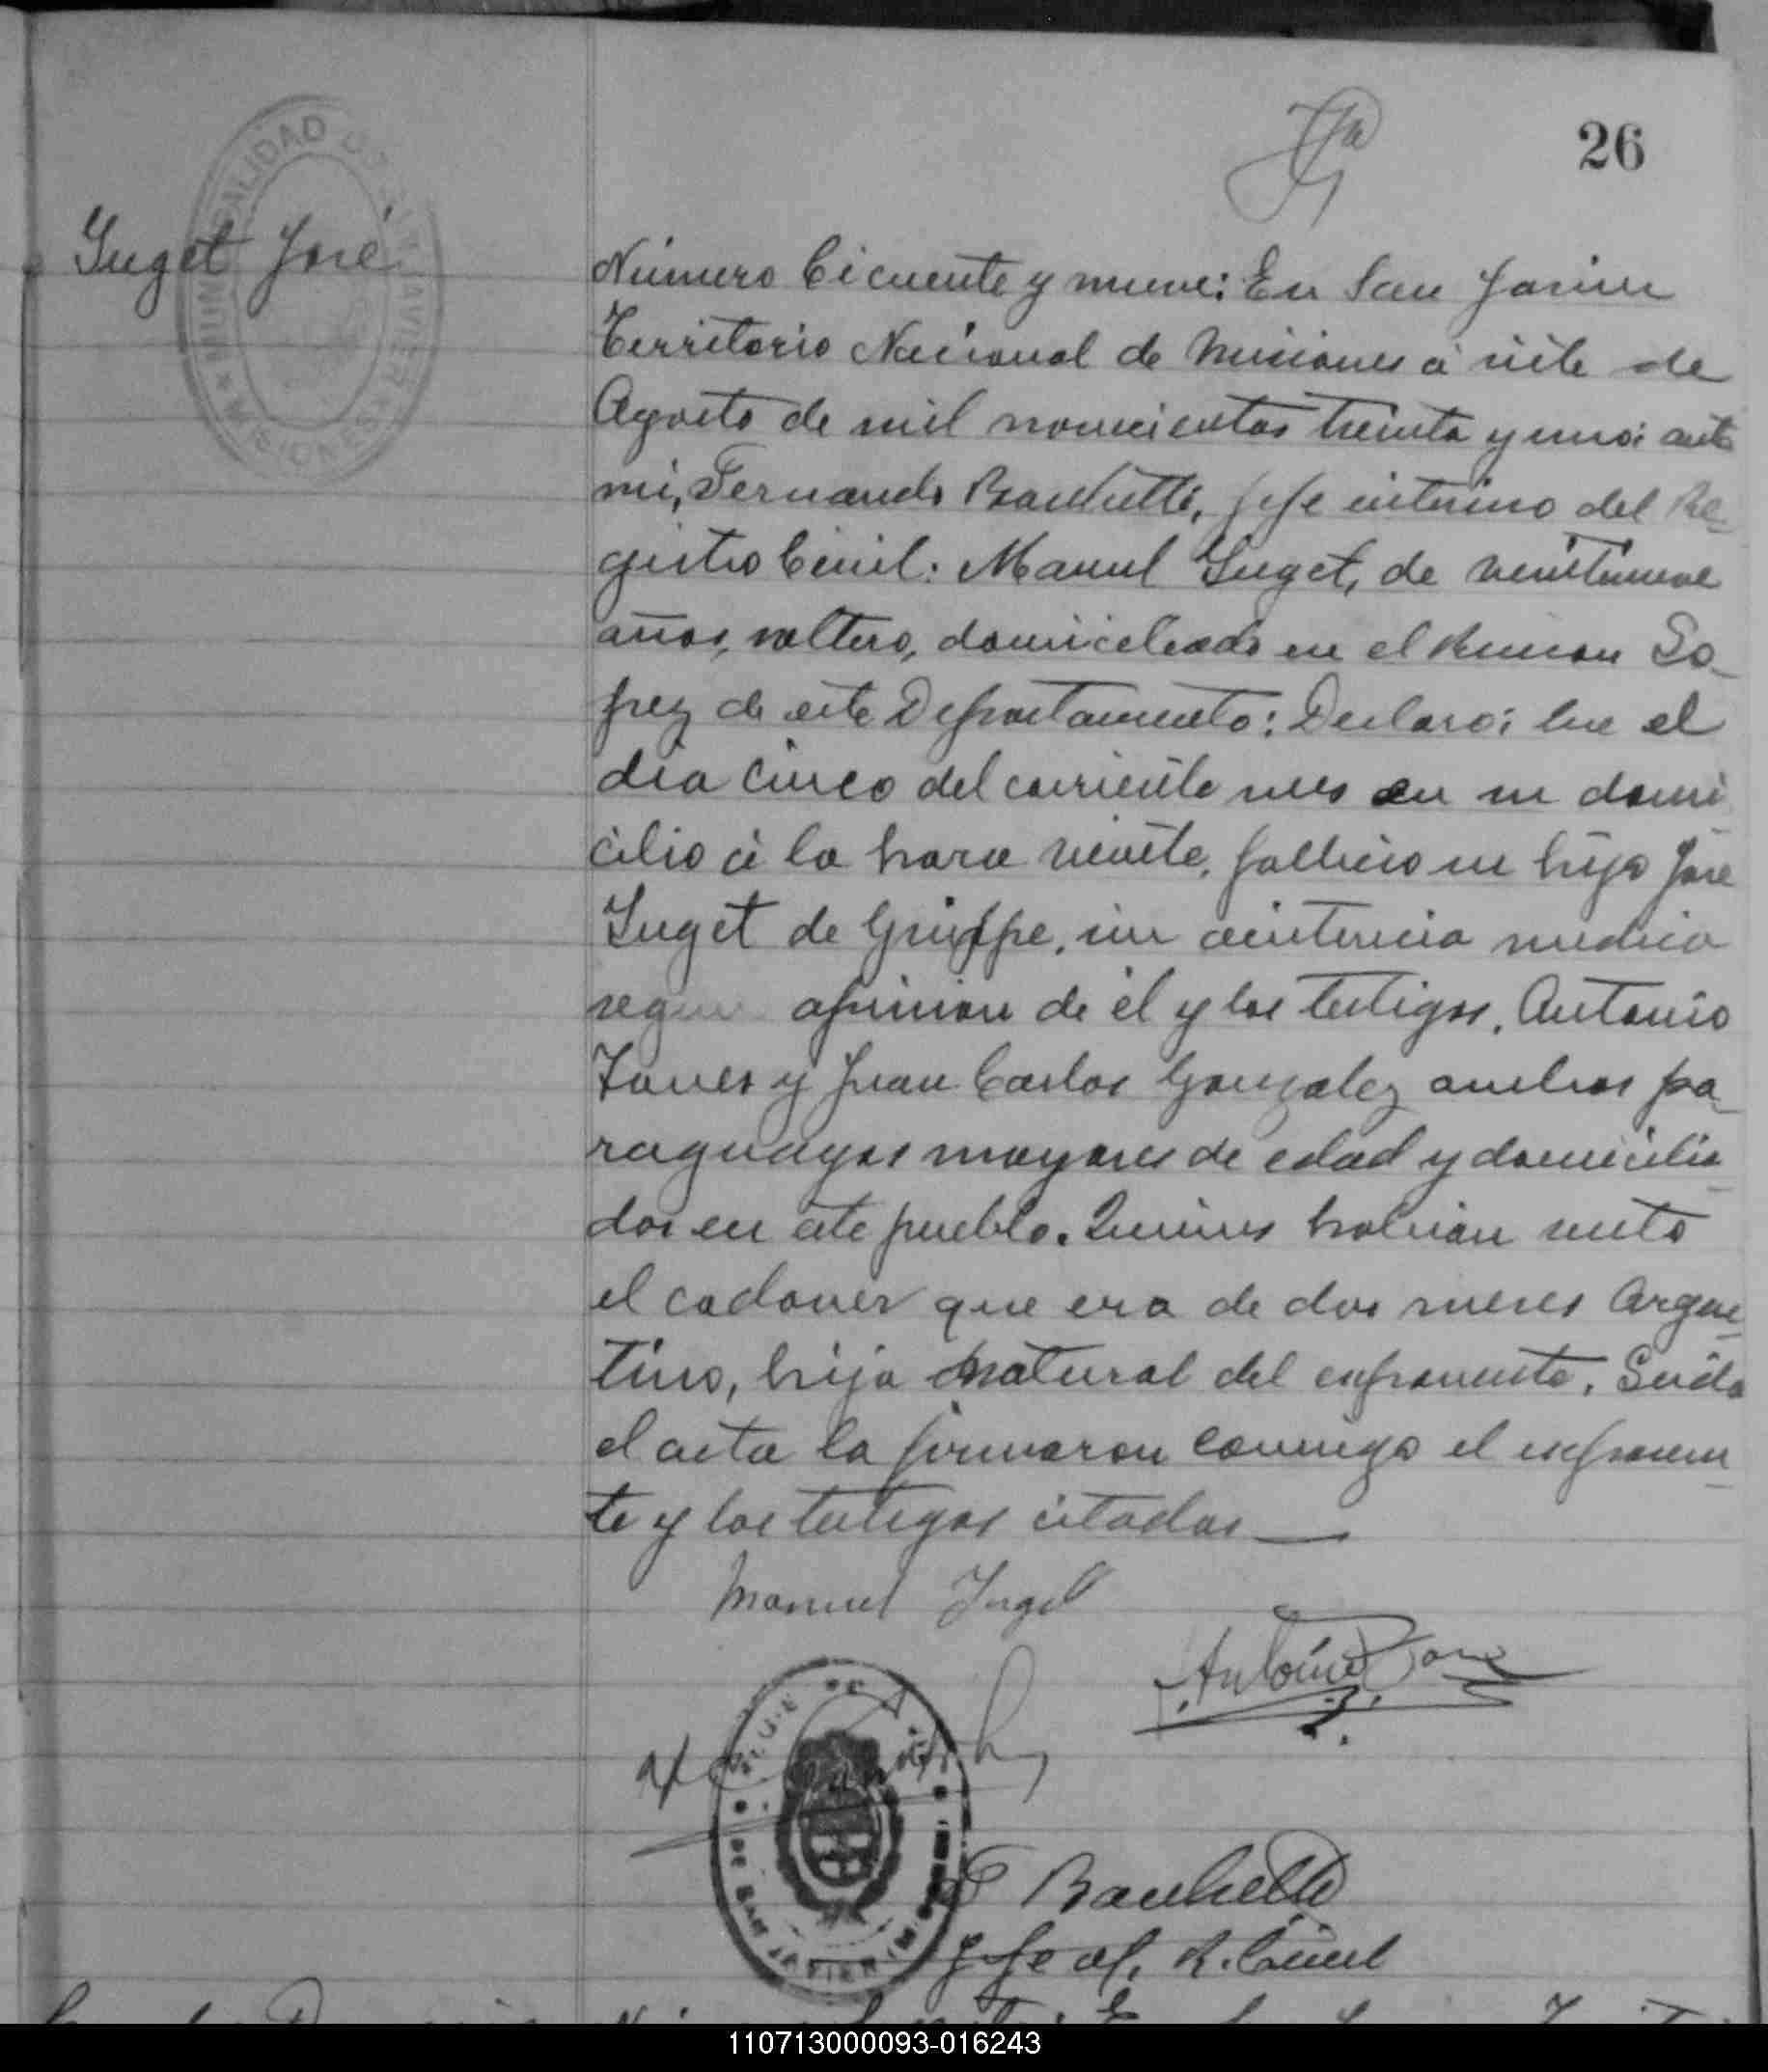 26
MUNICIPALIDAD DE SAN JAVIER
MISIONES
Yuget José
Número Cicuenta y nueve: En San Javier
Territorio Nacional de Misiones á siete de
Agosto de mil novecientos treinta y uno: ante
mi, Fernando Banchetti, Jefe interino del Re-
gistro Civil: Manuel Yuget, de veintinueve
años, soltero, domiciliado en el Rincon Lo-
pez de este Departamento: Declaró: Que el
dia cinco del corriente mes en su domi
cilio á la hora veinte, fallecio su hijo José
Yuget de Grippe, sin asistencia medica
segun opinion de él y los testigos, Antonio
y Juan Carlos Gonzalez ambos pa-
raguayos mayores de edad y domicilia-
dos en este pueblo. Quienes habian visto
el cadaver que era de dos meses Argen-
tino, hijo natural del exponente. Leida
el acta la firmaron conmigo el exponen-
te y los testigos citados
Manuel Yuget
Antonio
DE SAN JAVIER
F Banchetti
Jefe of. R. Civil
110713000093-016243